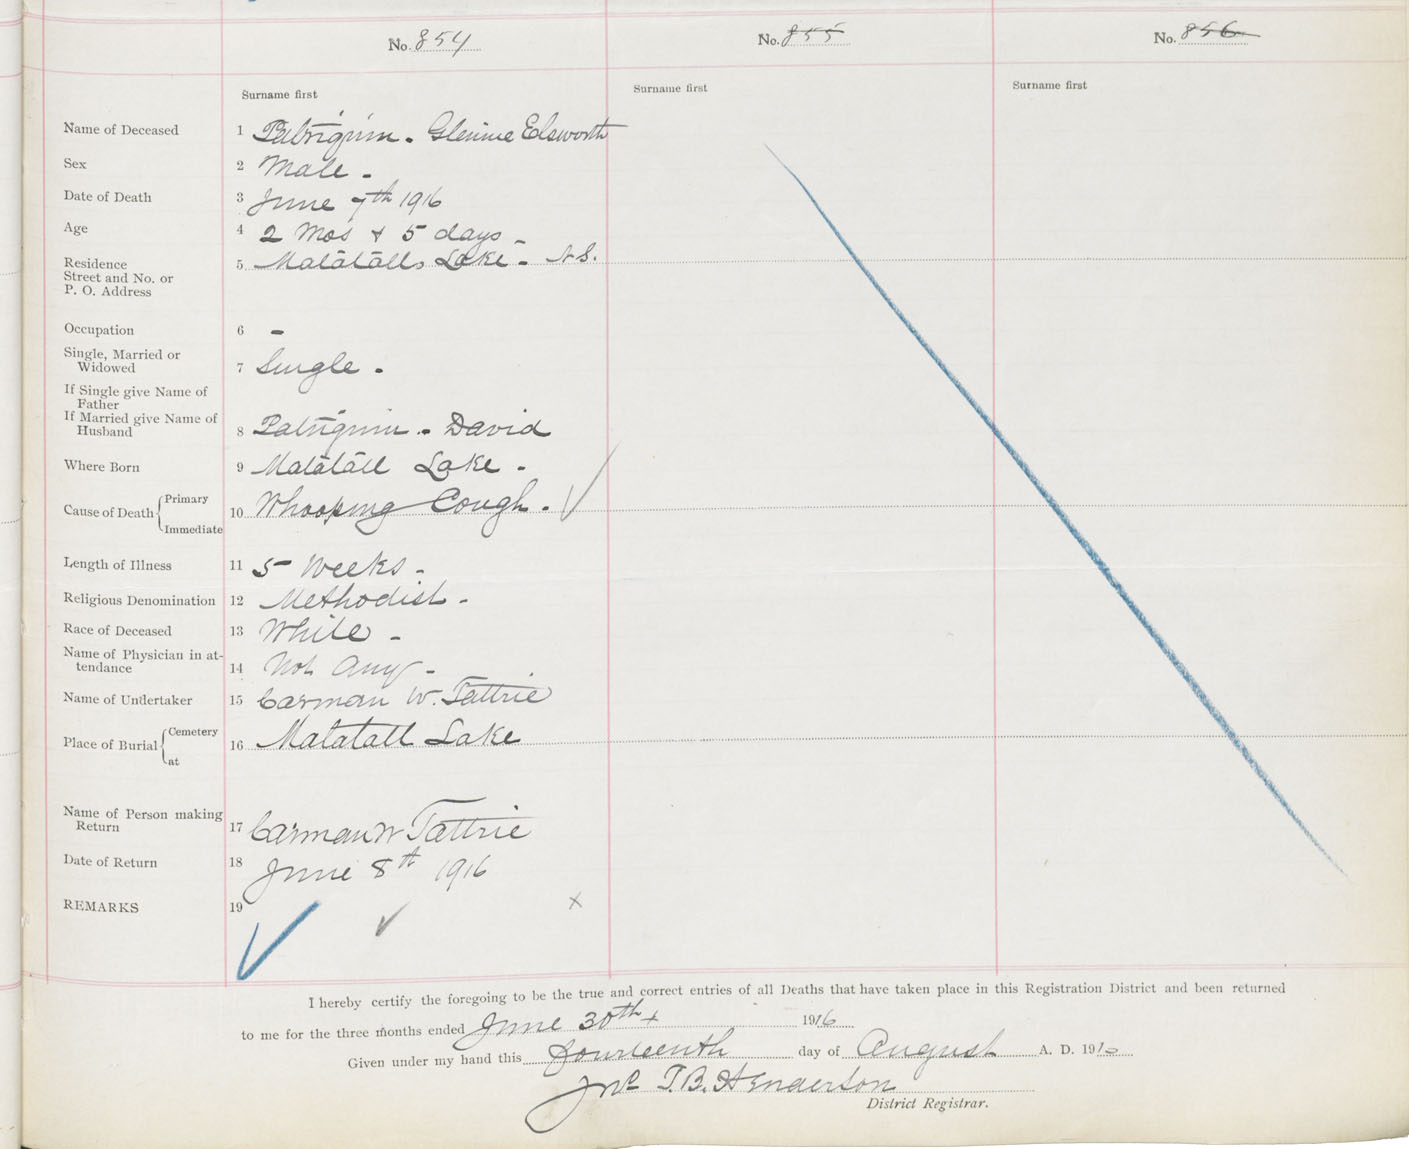 No. 854
No. 855
No. 856
Surname first
Surname first
Surname first
Name of Deceased 1 Patriquin - Glennie Elsworth
Sex 2 Male -
Date of Death 3 June 7th 1916
Age 4 2 Mos & 5 days -
Residence 5 Matatalls Lake - N.S.
Street and No. or
P. O. Address
Occupation 6 -
Single, Married or
Widowed 7 Single -
If Single give Name of
Father
If Married give Name of
Husband 8 Patriquin - David
Where Born 9 Matatall Lake -
Cause of Death { Primary
Immediate 10 Whooping Cough -
Length of Illness 11 5 Weeks -
Religious Denomination 12 Methodist -
Race of Deceased 13 White -
Name of Physician in at-
tendance 14 Not Any -
Name of Undertaker 15 Carman W. Tattrie
Place of Burial { Cemetery
at 16 Matatall Lake
Name of Person making
Return 17 Carman W Tattrie
Date of Return 18 June 8th 1916
REMARKS 19
I hereby certify the foregoing to be the true and correct entries of all Deaths that have taken place in this Registration District and been returned
to me for the three months ended June 30th 1916
Given under my hand this fourteenth day of August A. D. 191
Jno T. B. Henderson
District Registrar.